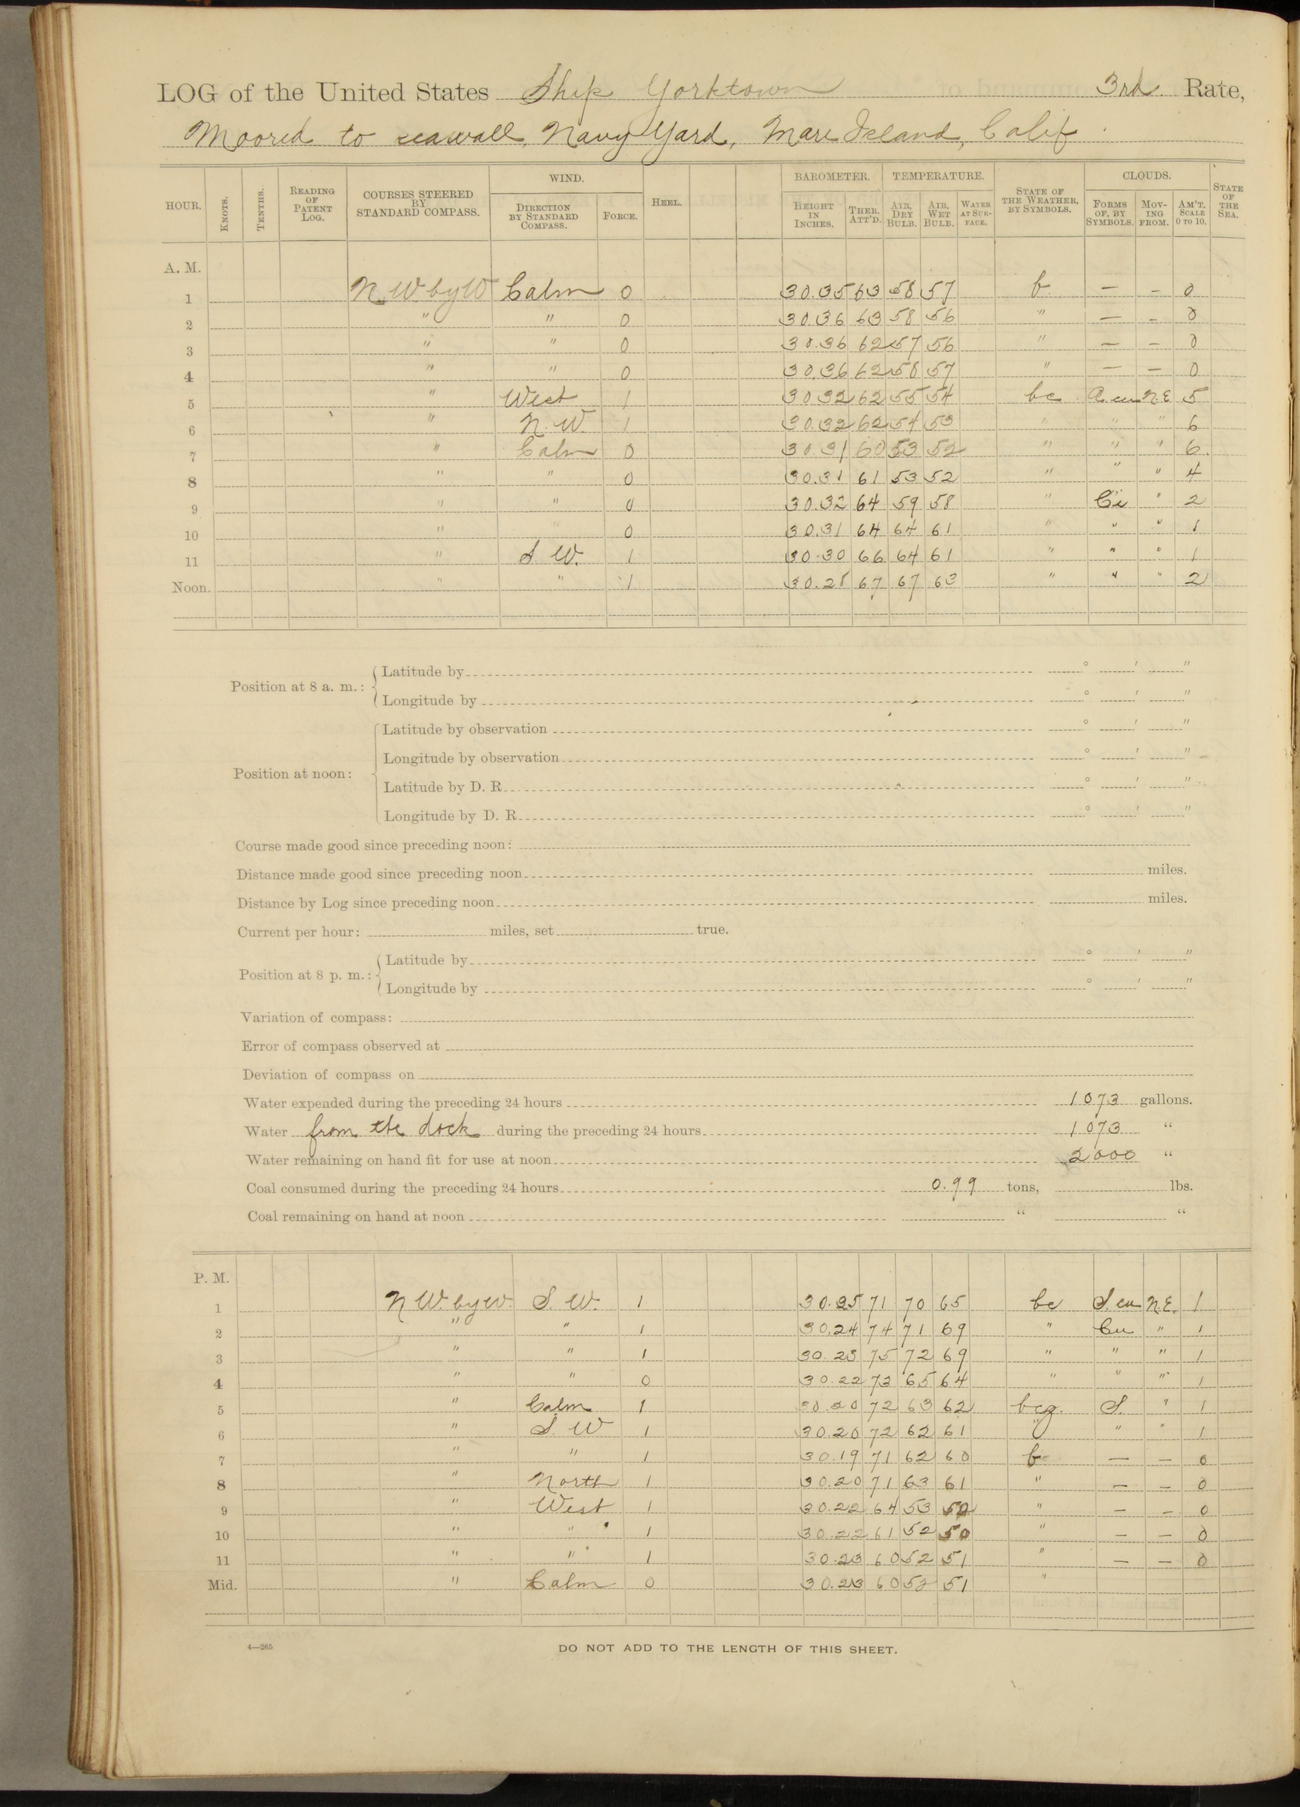 LOG of the United States Ship Yorktown 3rd Rate,
Moored to seawall, Navy Yard, Mare Island, Calif
HOUR. KNOTS. TENTHS. READING OF PATENT LOG. COURSES STEERED BY STANDARD COMPASS. WIND. DIRECTION BY STANDARD COMPASS. FORCE. HEEL. BAROMETER. HEIGHT IN INCHES. THER. ATT'D. TEMPERATURE. AIR, DRY BULB. AIR, WET BULB. WATER AT SURFACE. STATE OF THE WEATHER, BY SYMBOLS. CLOUDS. FORMS OF, BY SYMBOLS. MOVING FROM. AM'T. SCALE 0 TO 10. STATE OF THE SEA.
A. M.
1 N W by W Calm 0 30.35 63 58 57 b — – 0
2 " " 0 30.36 63 58 56 " — – 0
3 " " 0 30.36 62 57 56 " — — 0
4 " " 0 30.36 62 58 57 " — — 0
5 " West 1 30.32 62 55 54 bc A.cu N.E. 5
6 " N. W. 1 30.32 62 54 53 " " " 6
7 " Calm 0 30.31 60 53 52 " " " 6
8 " " 0 30.31 61 53 52 " " " 4
9 " " 0 30.32 64 59 58 " Ci " 2
10 " " 0 30.31 64 64 61 " " " 1
11 " S W. 1 30.30 66 64 61 " " " 1
Noon. " " 1 30.28 67 67 63 " " " 2
Position at 8 a. m.: Latitude by ° ' "
Longitude by ° ' "
Position at noon: Latitude by observation ° ' "
Longitude by observation ° ' "
Latitude by D. R. ° ' "
Longitude by D. R. ° ' "
Course made good since preceding noon:
Distance made good since preceding noon miles.
Distance by Log since preceding noon miles.
Current per hour: miles, set true.
Position at 8 p. m.: Latitude by ° ' "
Longitude by ° ' "
Variation of compass:
Error of compass observed at
Deviation of compass on
Water expended during the preceding 24 hours 1073 gallons.
Water from the dock during the preceding 24 hours 1073 "
Water remaining on hand fit for use at noon 2000 "
Coal consumed during the preceding 24 hours 0.99 tons, lbs.
Coal remaining on hand at noon " "
P. M.
1 N W. by W. S. W. 1 30.25 71 70 65 bc S.cu N.E. 1
2 " " 1 30.24 74 71 69 " Cu " 1
3 " " 1 30.23 75 72 69 " " " 1
4 " " 0 30.22 73 65 64 " " " 1
5 " Calm 1 30.20 72 63 62 bcg. S. " 1
6 " S. W 1 30.20 72 62 61 " " " 1
7 " " 1 30.19 71 62 60 b — — 0
8 " North 1 30.20 71 63 61 " — – 0
9 " West 1 30.22 64 53 52 " – – 0
10 " " 1 30.22 61 52 50 " — — 0
11 " " 1 30.23 60 52 51 " — — 0
Mid. " Calm 0 30.23 60 52 51 "
4—265 DO NOT ADD TO THE LENGTH OF THIS SHEET.